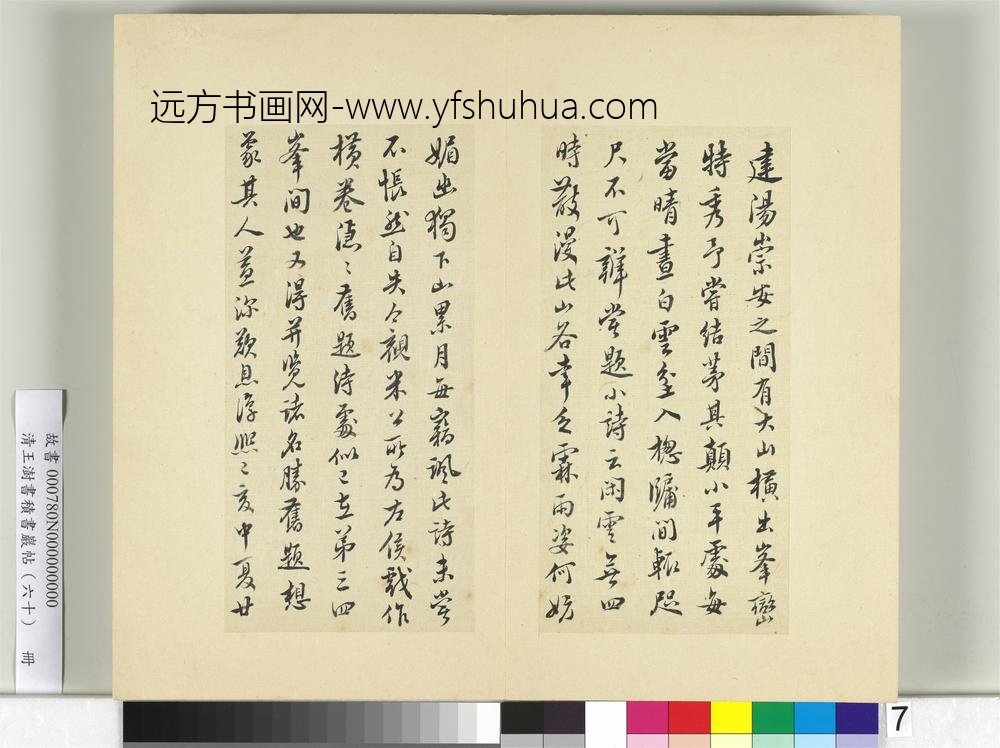 远方书画网-www.yfshuhua.com
建陽崇安之間有大山橫出峯巒
特秀予嘗結茅其顛小平處每
當晴晝白雲坌入窗牖間輒咫
尺不可辨嘗題小詩云閑雲無四
時散漫此山谷幸乏霖雨姿何妨
媚幽獨下山累月每竊諷此詩未嘗
不悵然自失今觀米公所為左侯戲作
橫卷隱〻舊題詩處似已在第三四
峯間也又得并覽諸名勝舊題想
象其人益深歎息淳熙己亥中夏廿
故書 000780N000000000
清王澍書積書巖帖（六十） 冊
7